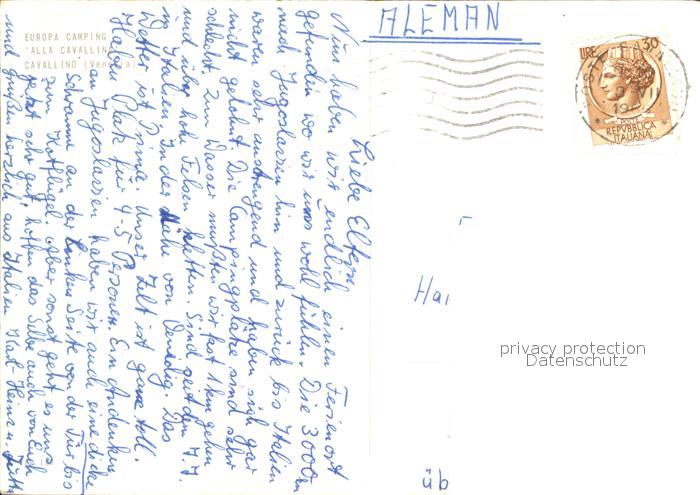 EUROPA CAMPING
"ALLA CAVALLIN
CAVALLINO (Venezia)
Liebe Eltern,
Nun haben wir endlich einen Ferienort
gefunden wo wir uns wohl fühlen. Die 3000 km
nach Jugoslavien hin und zurück bis Italien
waren sehr anstrengend und haben sich gar
nicht gelohnt. Die Campingplätze sind sehr
schlecht. Zum Wasser mußten wir fast 1 km gehen
und über hohe Felsen klettern. Sind seit dem 7.7.
in Italien. In der Nähe von Venedig. Das
Wetter ist Prima. Unser Zelt ist ganz toll.
Haben Platz für 4-5 Personen. Ein Andenken
an Jugoslavien haben wir auch eine dicke
Schramme an der Linken Seite von der Tür bis
zum Kotflügel. Aber sonst geht es uns
jetzt sehr gut, hoffen das Selbe auch von Euch
und grüßen herzlich aus Italien Karl-Heinz u.
ALEMAN
LIRE 30
REPVBBLICA
ITALIANA
Ha
privacy protection
Datenschutz